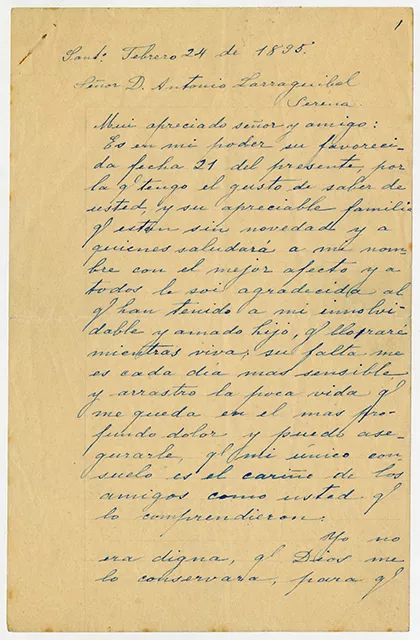 1
Sant: Febrero 24 de 1895.
Señor D. Antonio Larraguibel
Serena.
Mui apreciado señor y amigo:
Es en mi poder su favoreci-
da fecha 21 del presente, por
la q' tengo el gusto de saber de
usted, y su apreciable familia
q' están sin novedad y a
quienes saludará a mi nom-
bre con el mejor afecto y a
todos le soi agradecida al
q' han tenido a mi innolvi-
dable y amado hijo, q' lloraré
mientras viva; su falta me
es cada dia mas sensible
y arrastro la poca vida q'
me queda en el mas pro-
fundo dolor y puedo ase-
gurarle, q' mi único con
suelo es el cariño de los
amigos como usted q'
lo comprendieron.
Yo no
era digna, q' Dios me
lo conservara, para q'